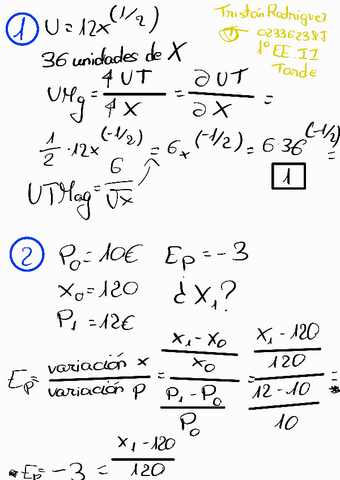 Tristán Rodríguez
023362387
1º EE.II
Tarde
1 U = 12x^(1/2)
36 unidades de X
UMg = ΔUT/ΔX = ∂UT/∂X =
1/2 · 12x^(-1/2) = 6x^(-1/2) = 6·36^(-1/2) =
1
UTMag = 6/√x
2 P₀ = 10€ Ep = -3
X₀ = 120 ¿X₁?
P₁ = 12€
Ep = variación x / variación p = ((x₁ - x₀)/x₀) / ((P₁ - P₀)/P₀) = ((x₁ - 120)/120) / ((12 - 10)/10) = *
* Ep = -3 = (x₁ - 120)/120